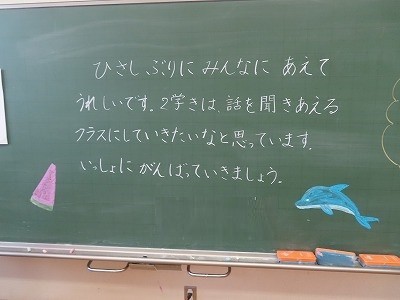 ひさしぶりに みんなに あえて
うれしいです。2学きは、話を聞きあえる
クラスにしていきたいなと思っています。
いっしょにがんばっていきましょう。